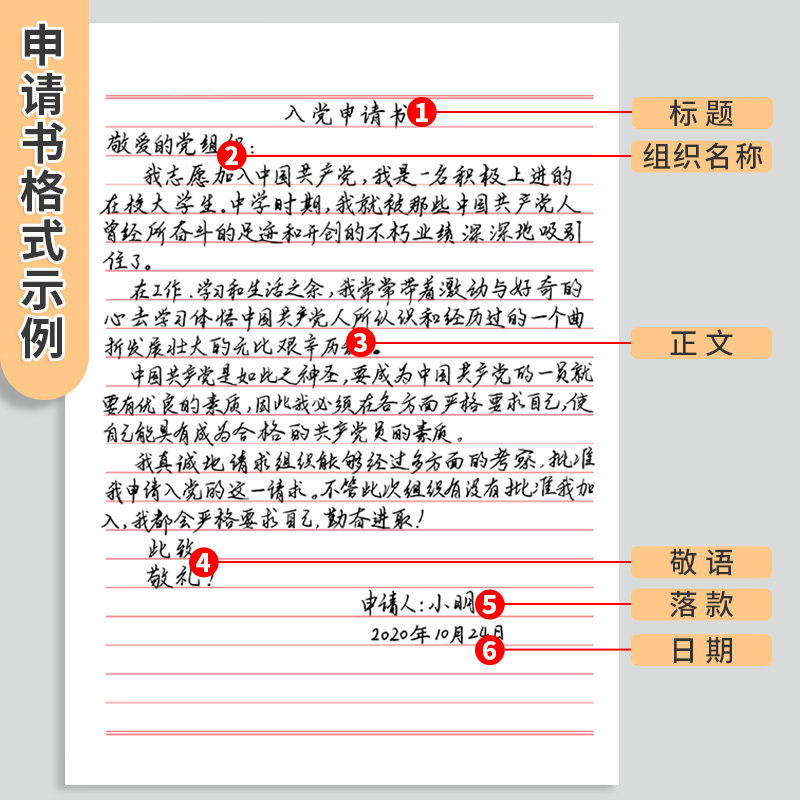 申请书格式示例
入党申请书 1
标题
敬爱的党组织:
2
组织名称
我志愿加入中国共产党,我是一名积极上进的
在校大学生。中学时期,我就被那些中国共产党人
曾经所奋斗的足迹和开创的不朽业绩深深地吸引
住了。
在工作、学习和生活之余,我常常带着激动与好奇的
心去学习体悟中国共产党人所认识和经历过的一个曲
折发展壮大的无比艰辛历
3
正文
中国共产党是如此之神圣,要成为中国共产党的一员就
要有优良的素质,因此我必须在各方面严格要求自己,使
自己能具有成为合格的共产党员的素质。
我真诚地请求组织能够经过多方面的考察,批准
我申请入党的这一请求。不管此次组织有没有批准我加
入,我都会严格要求自己,勤奋进取!
此致
4
敬语
敬礼!
申请人:小明 5
落款
2020年10月24日
6
日期